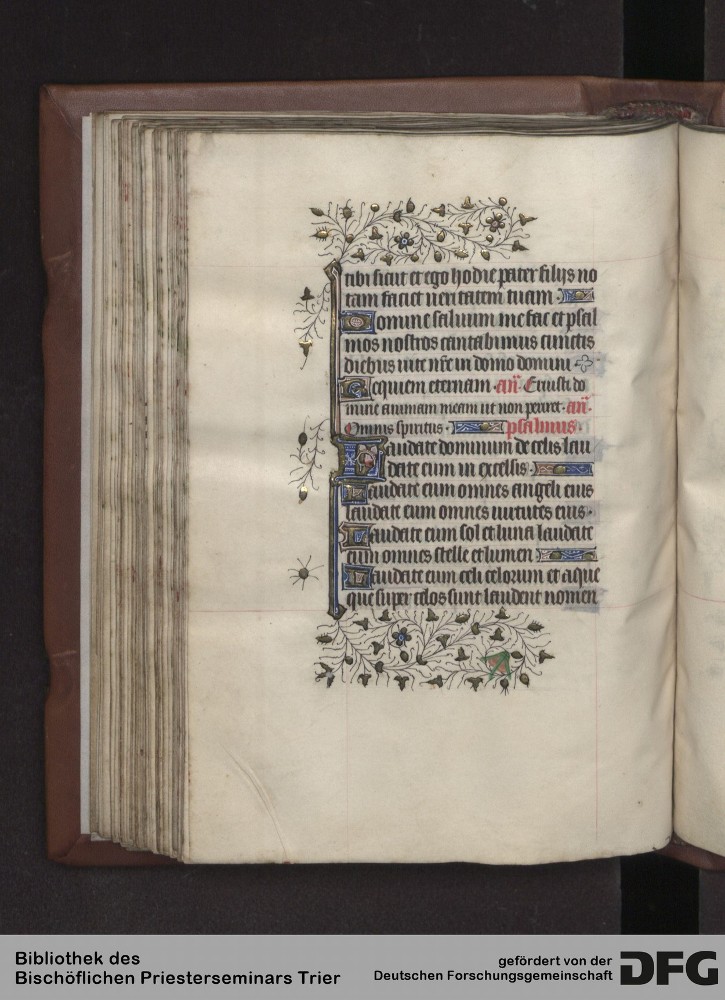 tibi sicut et ego hodie pater filijs no
tam faciet veritatem tuam
Domine saluum me fac et psal
mos nostros cantabimus cunctis
diebus vite nr̄e in domo domini
Requiem eternam. an̄. Eruisti do
mine animam meam ut non periret. an̄.
Omnis spiritus. psalmus.
Laudate dominum de celis lau
date eum in excelsis
Laudate eum omnes angeli eius
laudate eum omnes uirtutes eius.
Laudate eum sol et luna laudate
eum omnes stelle et lumen
Laudate eum celi celorum et aque
que super celos sunt laudent nomen
Bibliothek des
Bischöflichen Priesterseminars Trier
gefördert von der
Deutschen Forschungsgemeinschaft
DFG